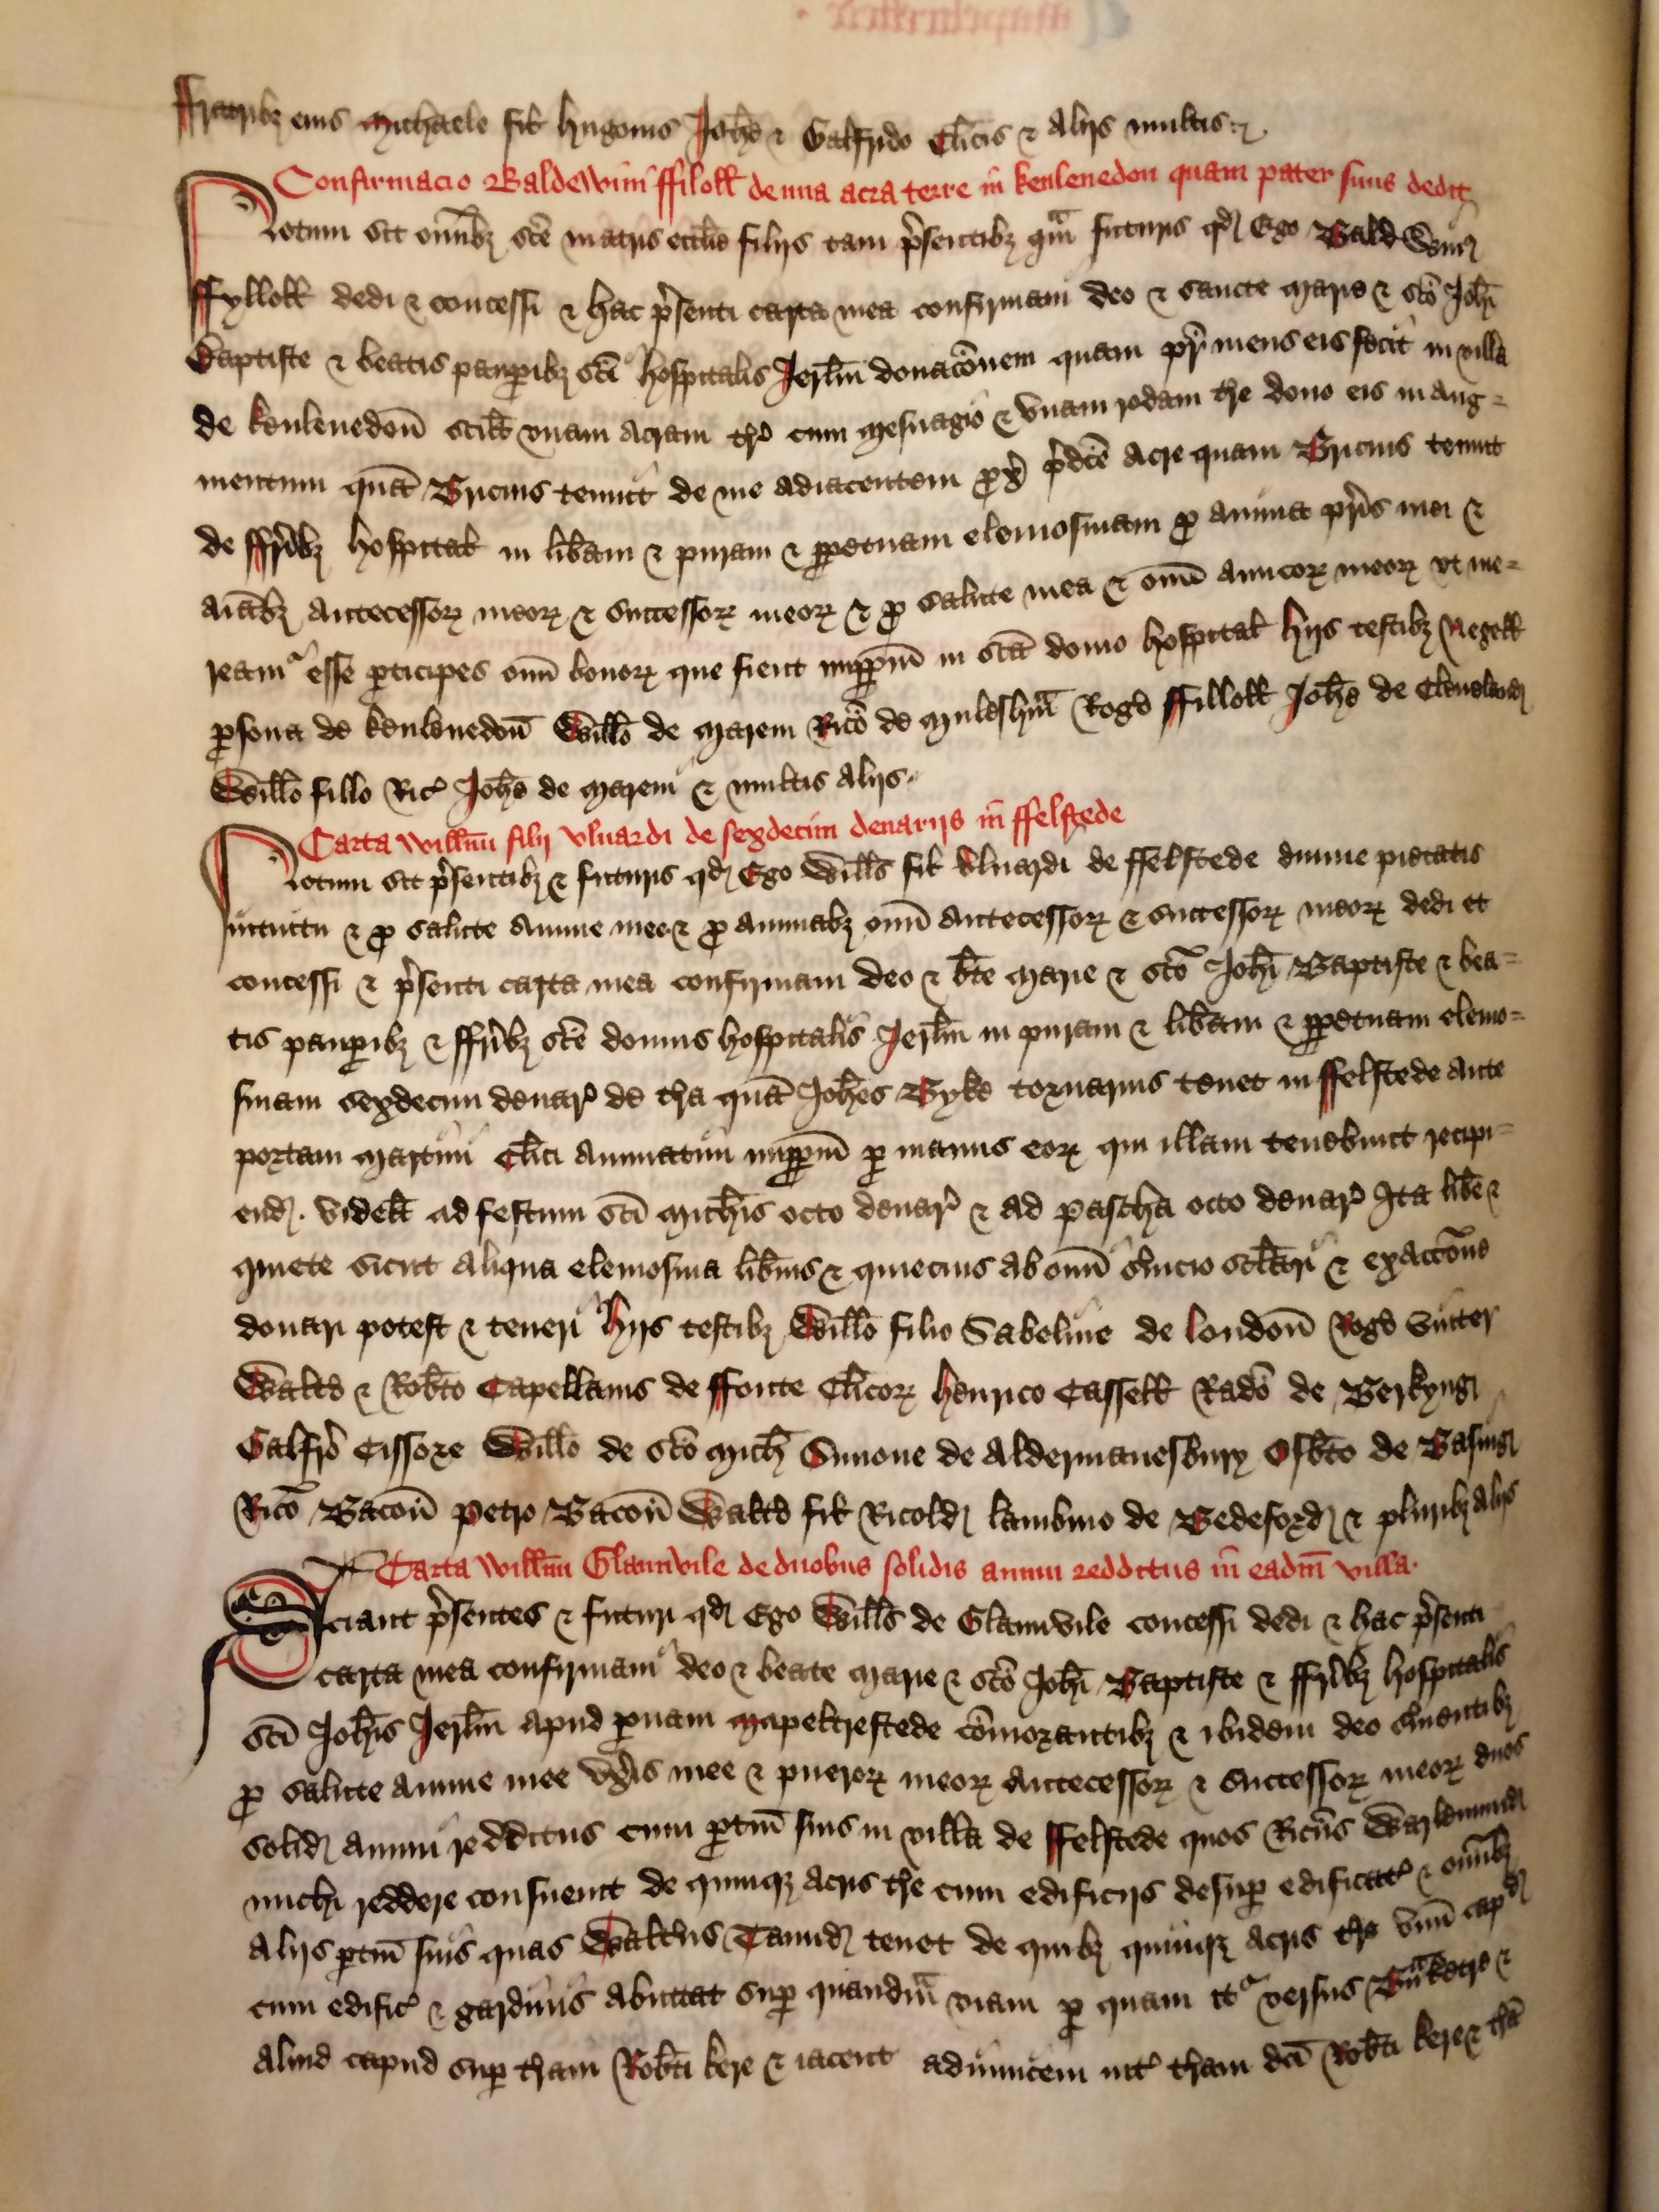 ffratribȝ eius Michaele fil̄ hugonis Joh̄e ⁊ Galfrido Cl̄icis ⁊ Alijs multis
Confirmacio Baldewini ffilołł de una acra terre in kenlenedon quam pater suus dedit
Notum sit om̄ibȝ sc̄e matris eccl̄ie filijs tam p̄sentibȝ qm̄ futuris qd̛ Ego Baldewin̛
ffyllołł dedi ⁊ concessi ⁊ hac p̄senti carta mea confirmaui deo ⁊ sancte Marie ⁊ sc̄o Joh̄i
Baptiste ⁊ beatis paup̱ibȝ sc̄i hospitalis Jerl̄m donac̄onem quam pr̄ meus eis fecit in villa
de kenlenedon̄ scilt̄ vnam Acram tr̄e cum mesuagio ⁊ vnam rodam tr̄e dono eis in aug=
mentum quā Bricius tenuit de me adiacentem p̱x̄ p̄dc̄e Acre quam Bricius tenuit
de ffr̄ibȝ hospital̄ in lib̄am ⁊ puram ⁊ p̱petuam elemosinam p̱ anima pr̄is mei ⁊
aīabȝ Antecessoꝝ meoꝝ ⁊ Successoꝝ meoꝝ ⁊ p̱ salute mea ⁊ om̄i amicoꝝ meoꝝ vt me=
reamᵘ esse p̱ticipes om̄i bonoꝝ que fient imp̱pm̄ in sc̄a domo hospital̄ hijs testibȝ Negełł
p̱sona de kenlenedon̄ Will̄o de Marem Ric̄o de Mulesh̄m Rog̱o ffillołł Joh̄e de Cleueland̛
Will̄o fillo Ric̛ Joh̄e de Marem ⁊ multis Alijs
Carta will̄mi filij vluardi de sexdecim denarijs in ffelstede
Notum sit p̄sentibȝ ⁊ futuris qd̛ Ego Will̄s fil̄ vluardi de ffelstede diuine pietatis
intuitu ⁊ p̱ salute Anime mee ⁊ p̱ animabȝ om̄i Antecessoꝝ ⁊ Successoꝝ meoꝝ dedi et
concessi ⁊ p̄senti carta mea confirmaui deo ⁊ b̄te Marie ⁊ sc̄o Joh̄i Baptiste ⁊ bea=
tis paup̱ibȝ ⁊ ffr̄ibȝ sc̄e domus hospitalis Jerl̄m in puram ⁊ lib̄am ⁊ p̱petuam elemo=
sinam sexdecim denar̛ de tr̄a quā Joh̄es Byke tornarius tenet in ffelstede Ante
portam Martini Cl̄ici Annuatim imp̱pm̄ p̱ manus eoꝝ qui illam tenebunt recipi=
end̛. videl̄t ad festum sc̄i Mich̄is octo denar̛ ⁊ ad pascha octo denar̛ Ita lib̄e ⁊
quiete sicut Aliqua elemosina lib̄ius ⁊ quiecius ab om̄i s̄uicio scl̄ari ⁊ exacc̄one
donari potest ⁊ teneri hijs testibȝ Will̄o filio Sabeline de london̄ Rog̱o Sutter
Walt̄o ⁊ Rob̄to Capellanis de ffonte Cl̄icoꝝ henrico Cassełł Rad̄o de Berkyng̛
Galfr̄o Cissore Will̄o de sc̄o Mich̄ Simone de Aldermanesbury Osb̄to de Basing̛
Ric̄o Bacon̄ petro Bacon̄ Walt̄o fil̄ Ricold̛ lambino de Bedeford̛ ⁊ pluribȝ alijs
Carta will̄mi Glamvile de duobus solidis annui redditus in eadm̄ villa
Sciant p̄sentes ⁊ futuri qd̛ Ego Will̄s de Glamvile concessi dedi ⁊ hac p̄senti
carta mea confirmaui deo ⁊ beate Marie ⁊ sc̄o Joh̄i Baptiste ⁊ ffr̄ibȝ hospitalis
sc̄i Joh̄is Jerl̄m apud p̱uam Mapeltrestede com̄orantibȝ ⁊ ibidem deo s̄uientibȝ
p̱ salute anime mee vx̄is mee ⁊ pueroꝝ meoꝝ Antecessoꝝ ⁊ Successoꝝ meoꝝ duos
solid̛ annui redditus cum p̱tin̄ suis in villa de ffelstede quos Ric̄us
michi reddere consueuit de quinqȝ acris tr̄e cum edificijs desup̱ edificat̛ ⁊ om̄ibȝ
Alijs p̱tin̄ suis quas Walt̄us Tanud̛ tenet de quibȝ quinqȝ acris tr̄e vnū cap̱d̛
cum edific̛ ⁊ gardinis Abuttat sup̱ quandm̄ viam p̱ quam itᵘ versus ⁊
aliud capud sup̱ tr̄am Rob̄ti kere ⁊ iacent adinuicem int̛ tr̄am dc̄i Rob̄ti kere ⁊ tr̄a